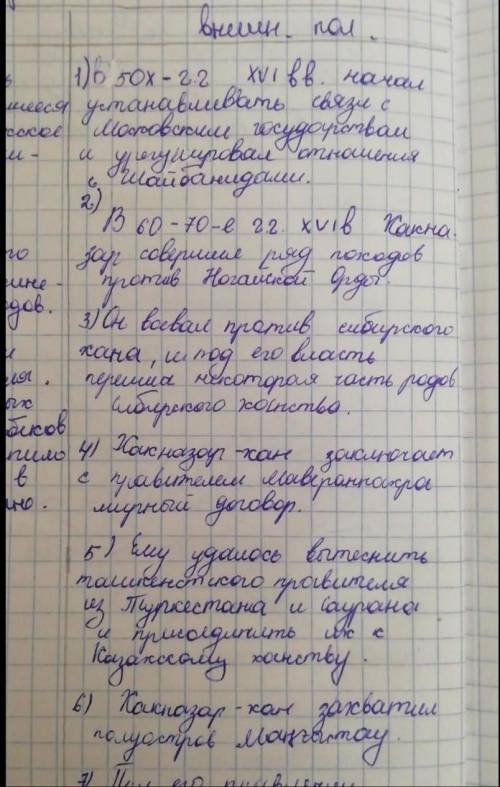 внешн. пол.
1) В 50х-г.г XVI вв. начал
шегося устанавливать связи с
ское Московским государствам
и урегулировал отношения
с Шайбанидами.
2)
В 60-70-е г.г. XVI в Хакна.
го зар совершил ряд походов
ине- против Ногайской Орды.
дов.
3) Он воевал против сибирского
и хана, и под его власть
перешла некоторая часть родов
ых Сибирского ханства.
беков
4) Хакназар-хан заключает
в с правителем Мавераннахра
но. мирный договор.
5) Ему удалось вытеснить
ташкентского правителя
из Туркестана и Саурана
и присоединить их к
Казахскому ханству.
6) Хакназар-хан захватил
полуостров Маңғыстау.
7) При его правлении